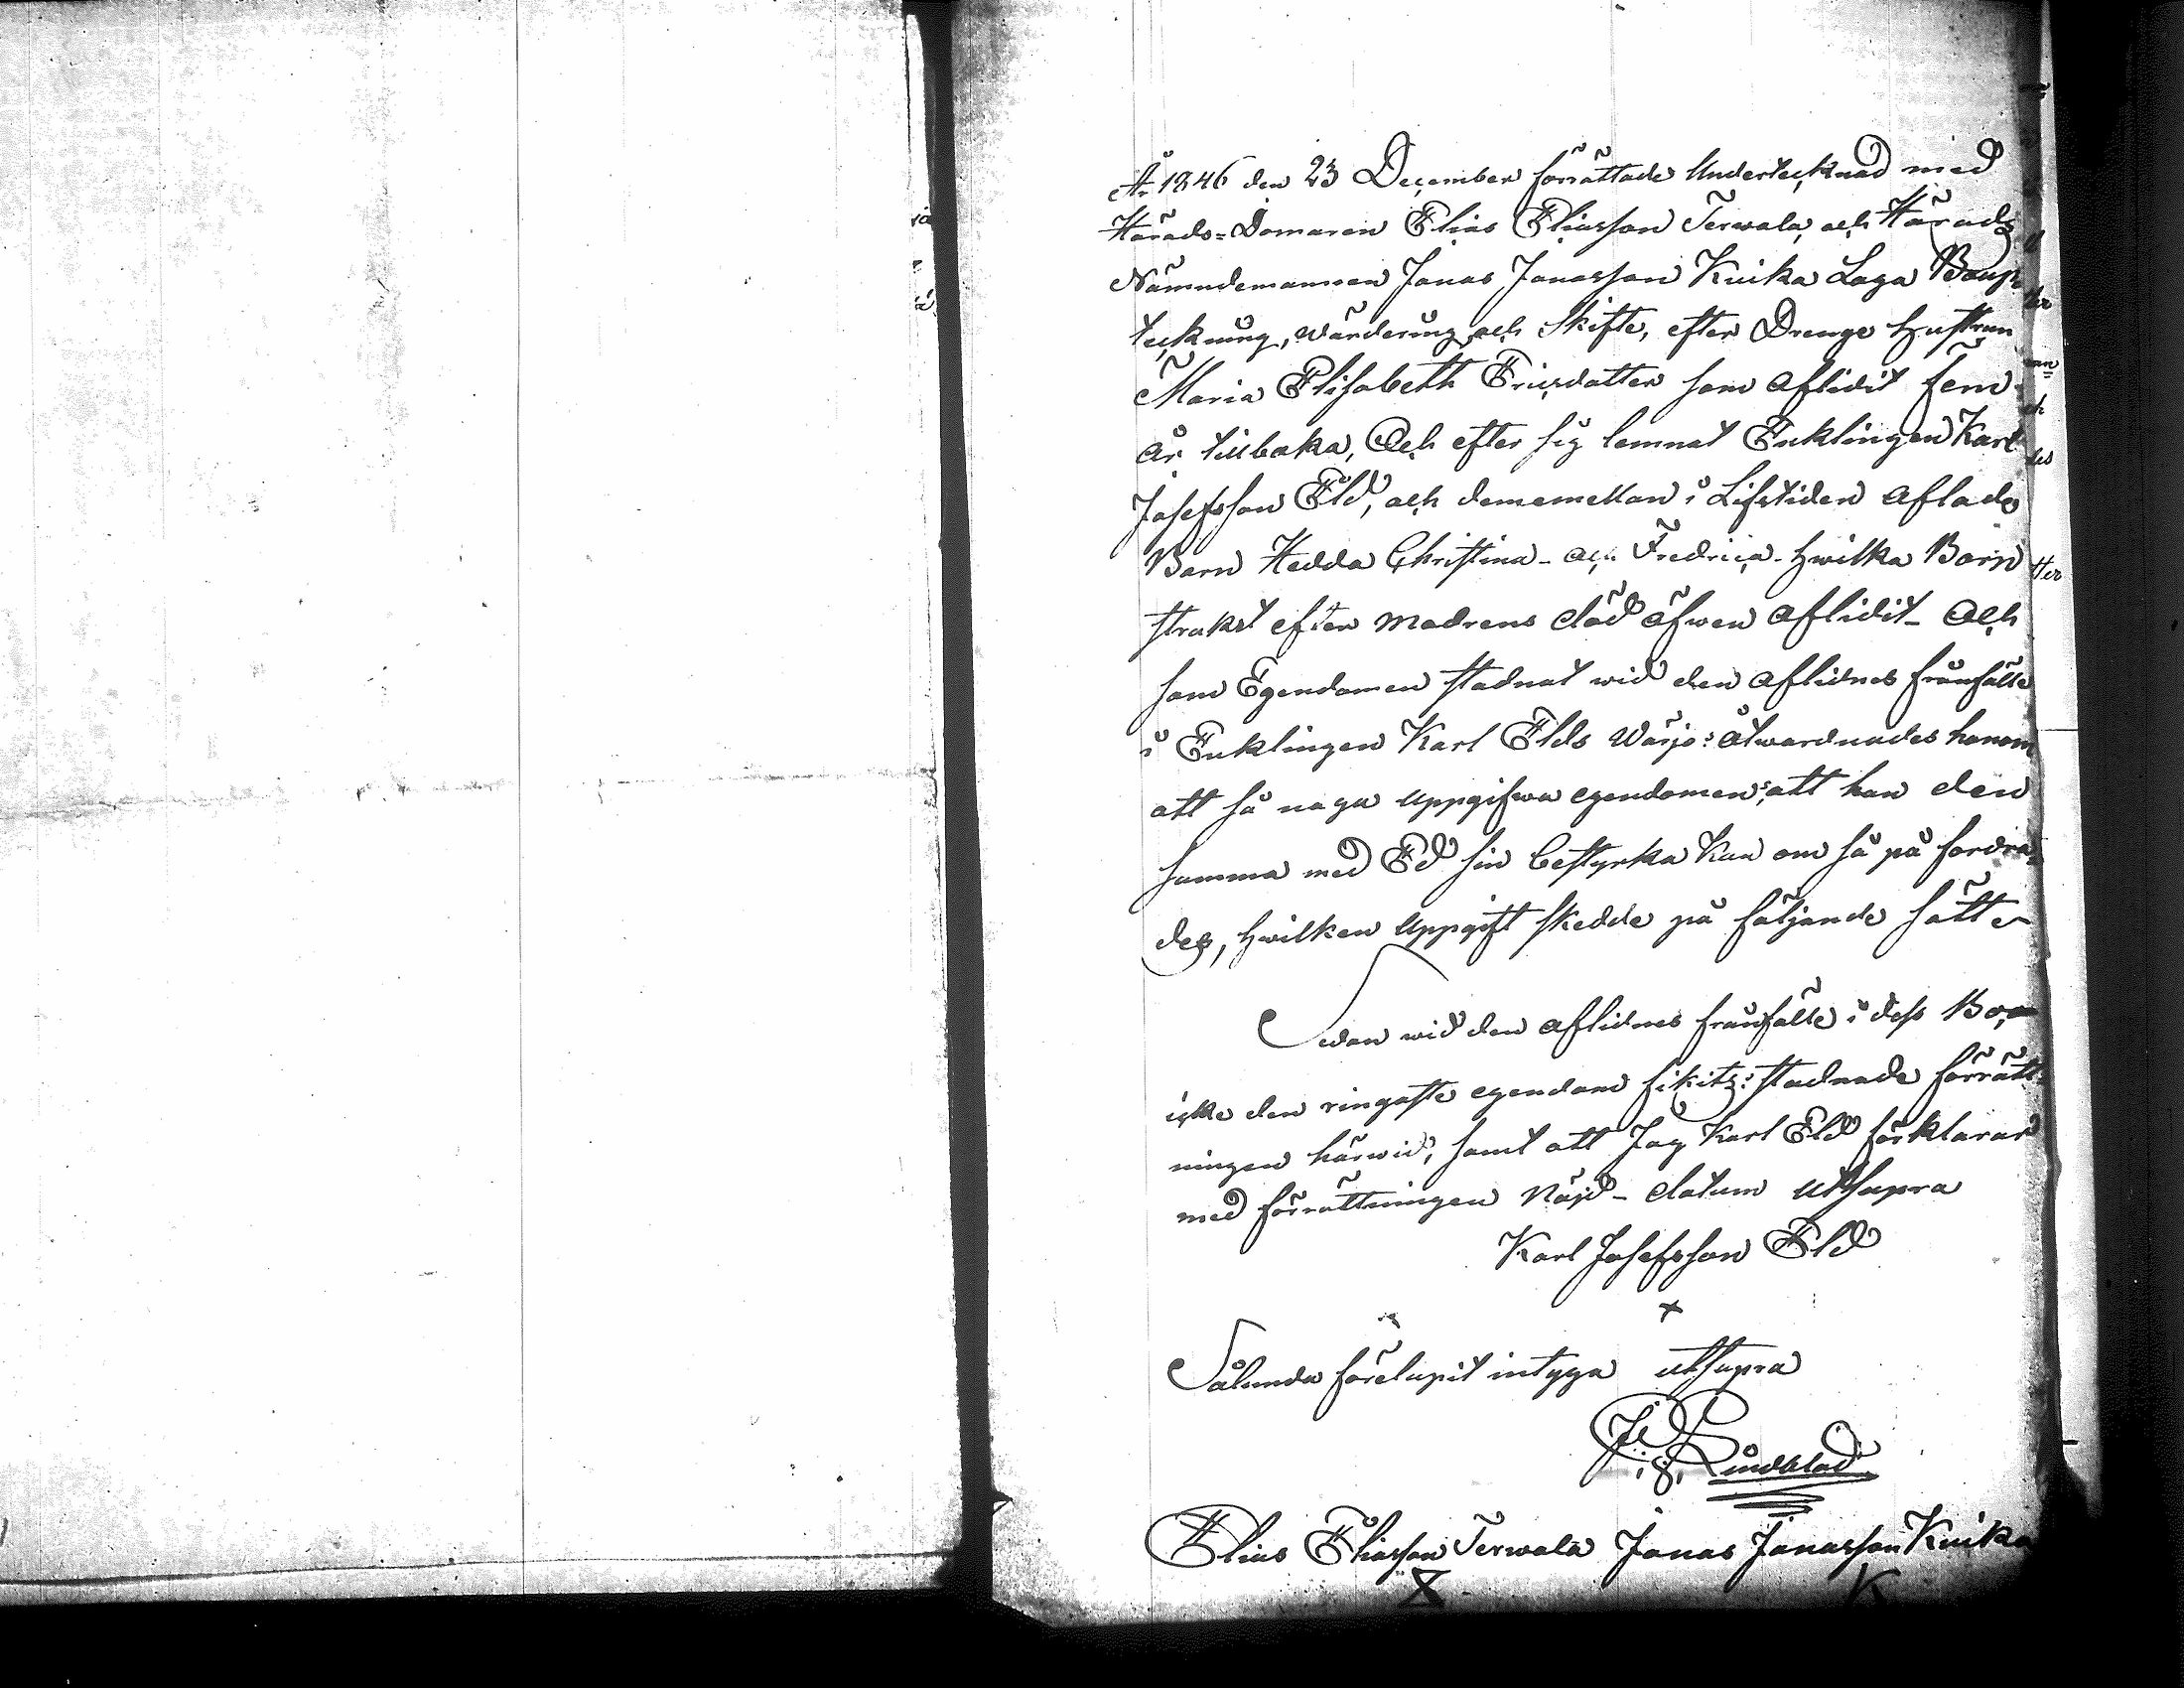 År 1846 den 23 December förrättade Undertecknad med
Härads=Domaren Elias Eliasson Terwala, och Härads
Nämndemannen Jonas Jonasson Knika Laga Boup=
teckning, wärdering och skifte, efter Drenge hustrun
Maria Elisabeth Ericsdotter som aflidit fem
år tillbaka, Och efter sig lemnat Enklingen Karl
Josefsson Eld, och dememellan i Lifstiden aflade
Barn Hedda Christina - och Fredrica - hwilka Barn
strakst efter modrens död äfwen aflidit - Och
som Egendomen stadnat wid den aflidnes frånfälle
i Enklingen Karl Elds wärjo: åtwardnades honom
att så noga uppgifwa egendomen: att han den
samma med Ed sin bestyrka kan om så på fordra=
des, hwilken uppgift skedde på följande sätt
Sedan wid den aflidnes frånfälle i dess Bo,
icke den ringaste egendom fikits: stadnade förrätt=
ningen härwid, samt att Jag Karl Eld förklarar
med förrättningen Nöjd - datum utsupra
Karl Josefsson Eld
x
Sålunda förelupit intyga utsupra
Lindblad
Elias Eliasson Terwala Jonas Jonasson Knika